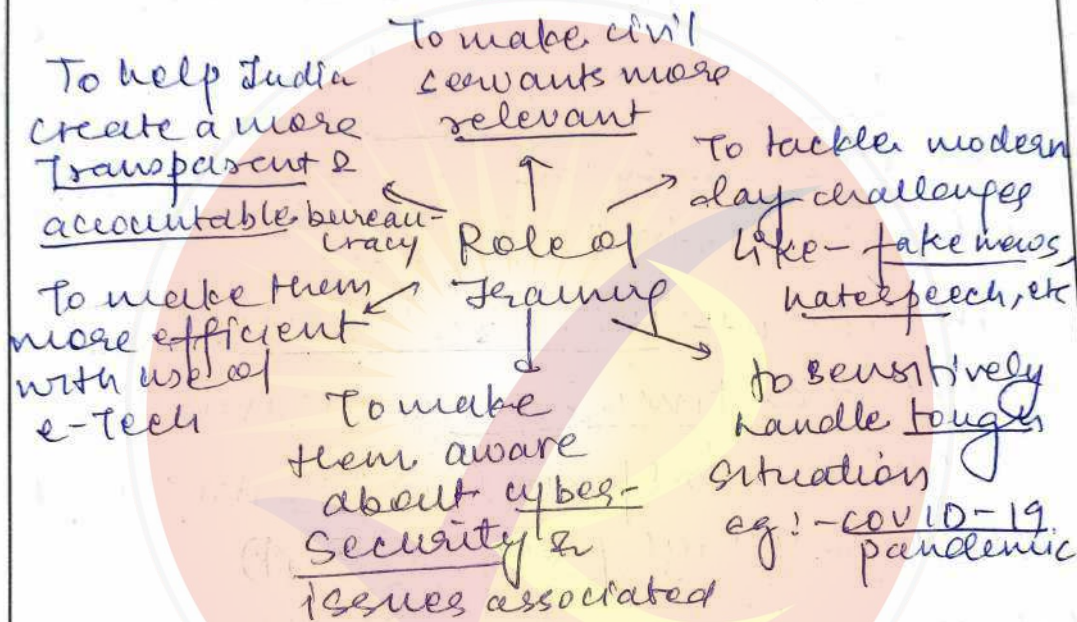 To make civil
servants more
relevant
To help India
create a more
transparent &
accountable bureau-
cracy
To tackle modern
day challenges
like - fake news,
hatespeech, etc
Role of
Training
To make them
more efficient
with use of
e-Tech
To make
them aware
about cyber-
security &
issues associated
to sensitively
handle tough
situation
eg:- COVID-19
pandemic